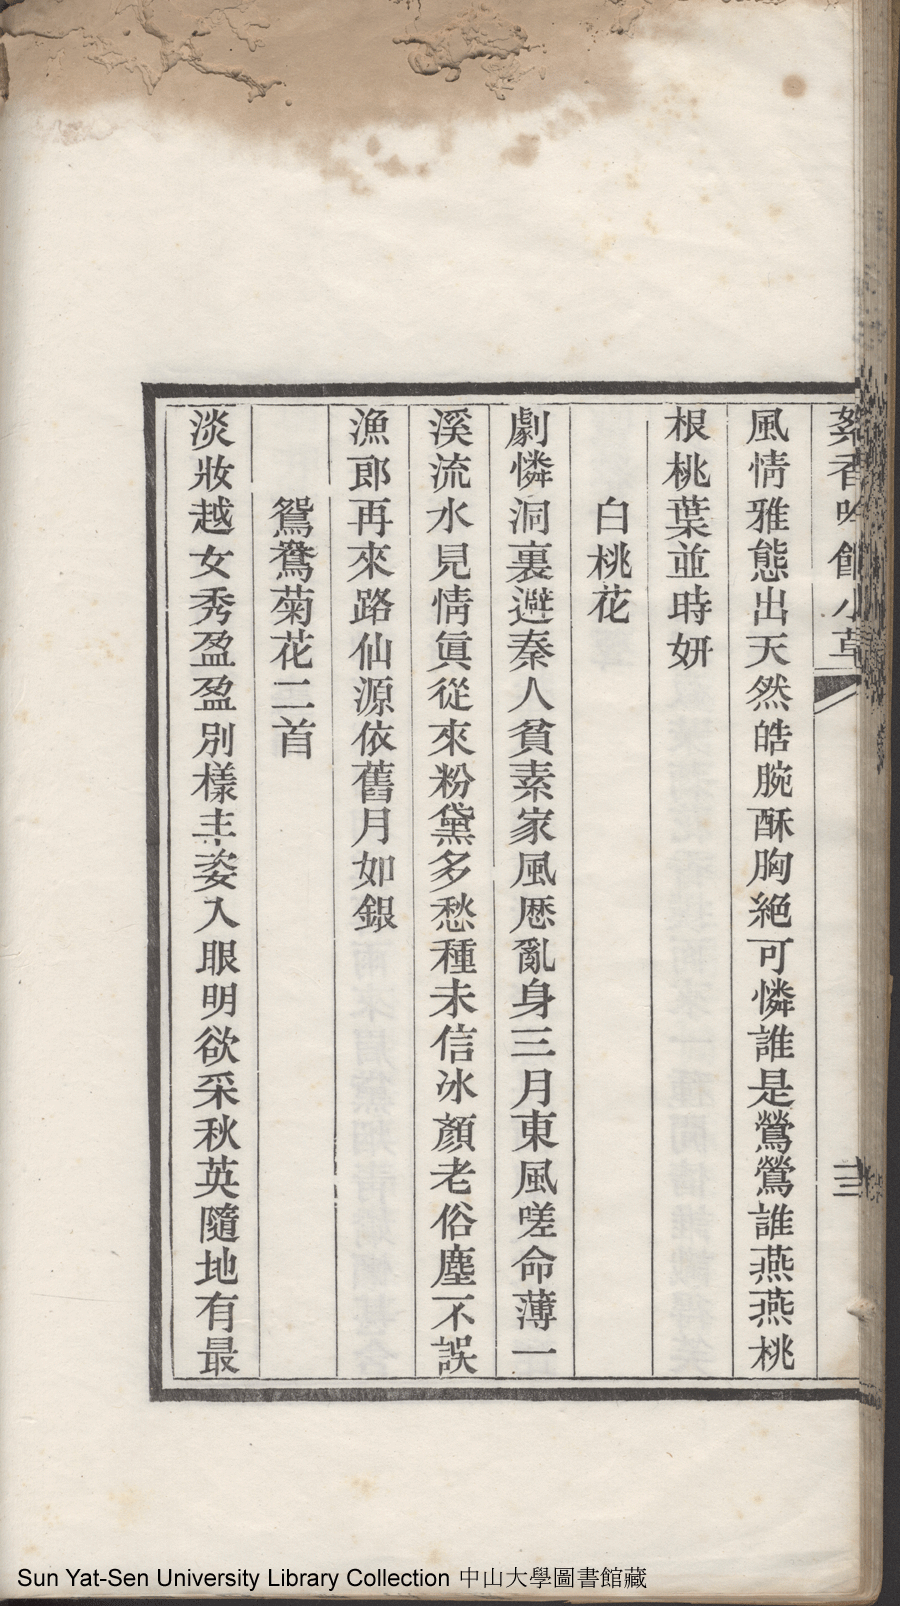 絮香吟館小草
三
風情雅態出天然皓腕酥胸絕可憐誰是鶯鶯誰燕燕桃
根桃葉並時妍
白桃花
劇憐洞裏避秦人貧素家風厯亂身三月東風嗟命薄一
溪流水見情眞從來粉黛多愁種未信冰顏老俗塵不誤
漁郎再來路仙源依舊月如銀
鴛鴦菊花二首
淡妝越女秀盈盈別樣丰姿入眼明欲采秋英隨地有最
Sun Yat-Sen University Library Collection 中山大學圖書館藏